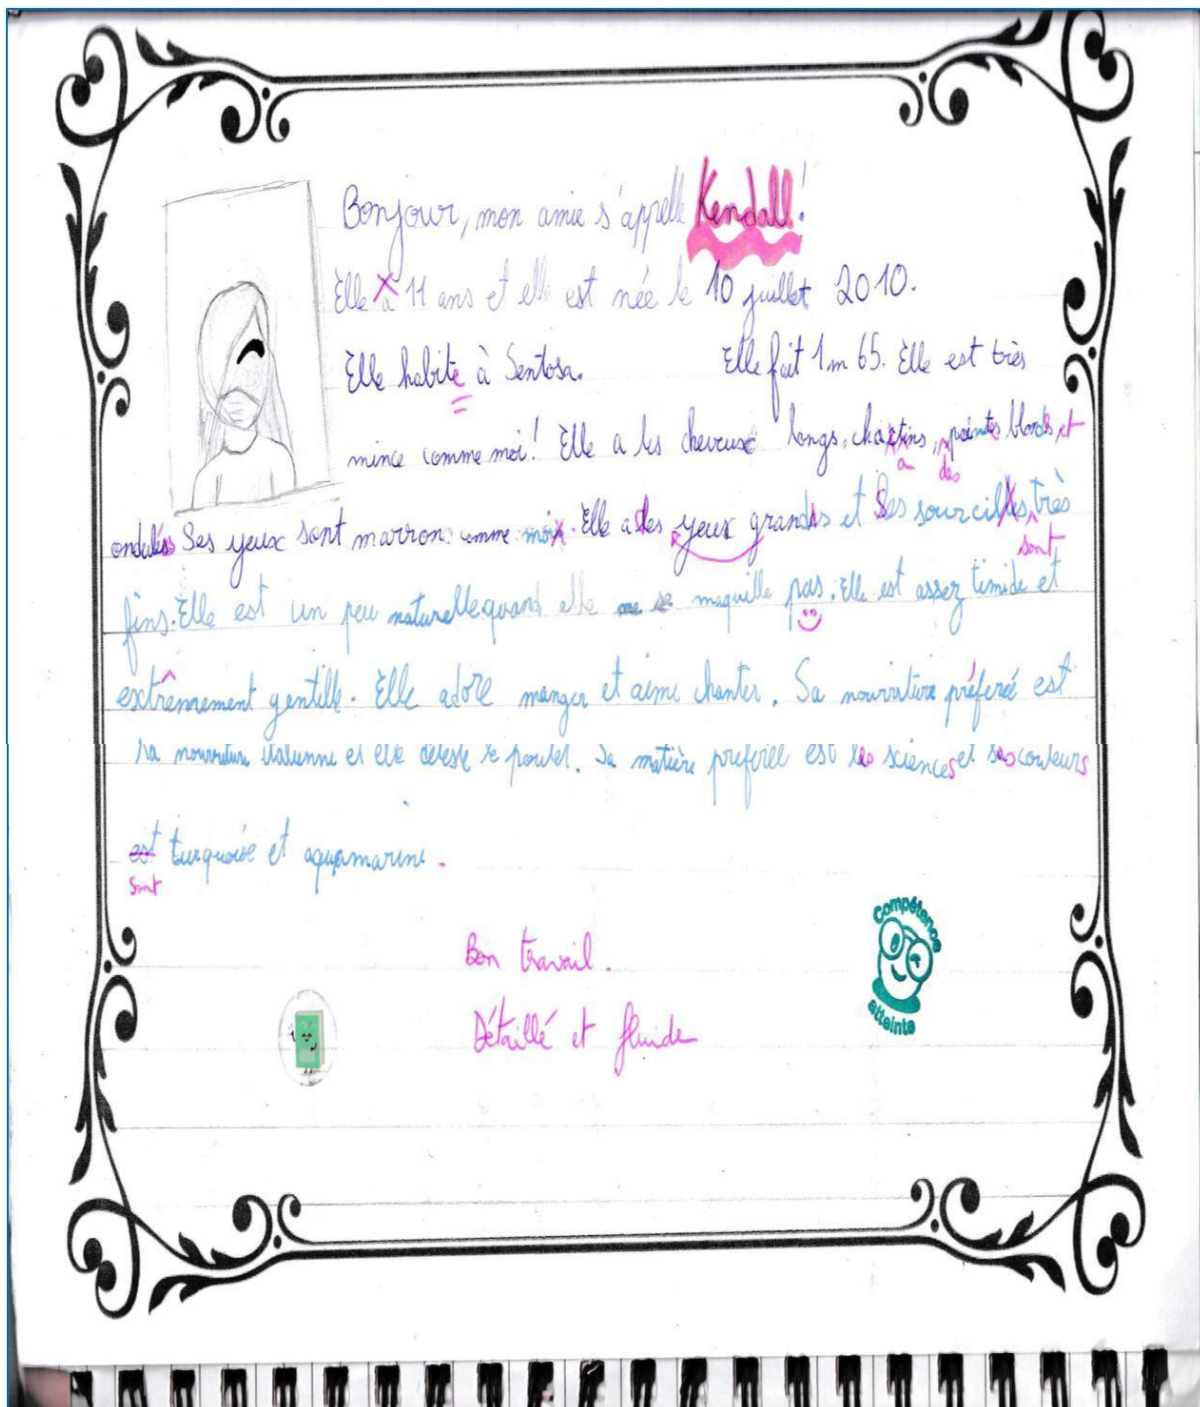 Bonjour, mon amie s'appelle Kendall!
Elle a 11 ans et elle est née le 10 juillet 2010.
Elle habite à Sentosa. Elle fait 1m65. Elle est très
mince comme moi! Elle a les cheveux longs, chatins, pointes blonds et
a des
ondulés Ses yeux sont marron comme moi. Elle a des yeux grands et Ses sourcils très
sont
fins. Elle est un peu naturelle quand elle se maquille pas. Elle est assez timide et
extrêmement gentille. Elle adore manger et aime chanter. Sa nourriture préférée est
la nourriture italienne et elle déteste le poulet. Sa matière préférée est les sciences et ses couleurs
est turquoise et aquamarine.
sont
Bon travail.
Détaillé et fluide
Compétence
atteinte